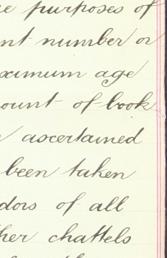 purposes of
number or
maximum age
ount of book
ascertained
been taken
dors of all
her chattels